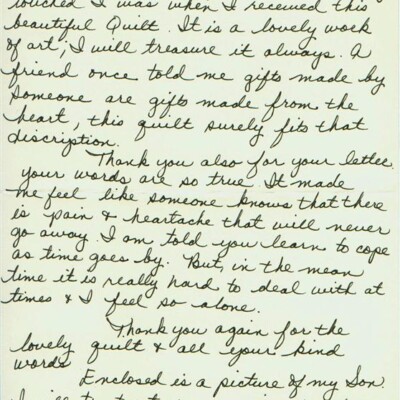 touched I was when I received this
beautiful Quilt. It is a lovely work
of art, I will treasure it always. A
friend once told me gifts made by
someone are gifts made from the
heart, this quilt surely fits that
discription.
Thank you also for your letter.
your words are so true. It made
me feel like someone knows that there
is pain & heartache that will never
go away. I am told you learn to cope
as time goes by. But, in the mean
time it is really hard to deal with at
times & I feel so alone.
Thank you again for the
lovely quilt & all your kind
words
Enclosed is a picture of my Son.